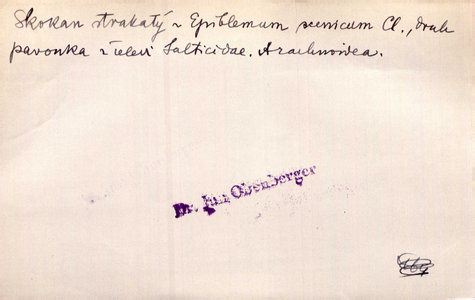 Skokan strakatý ~ Epiblemum scenicum Cl., druh
pavouka z čeledi Salticidae. Arachnoidea.
Dr. Jan Obenberger